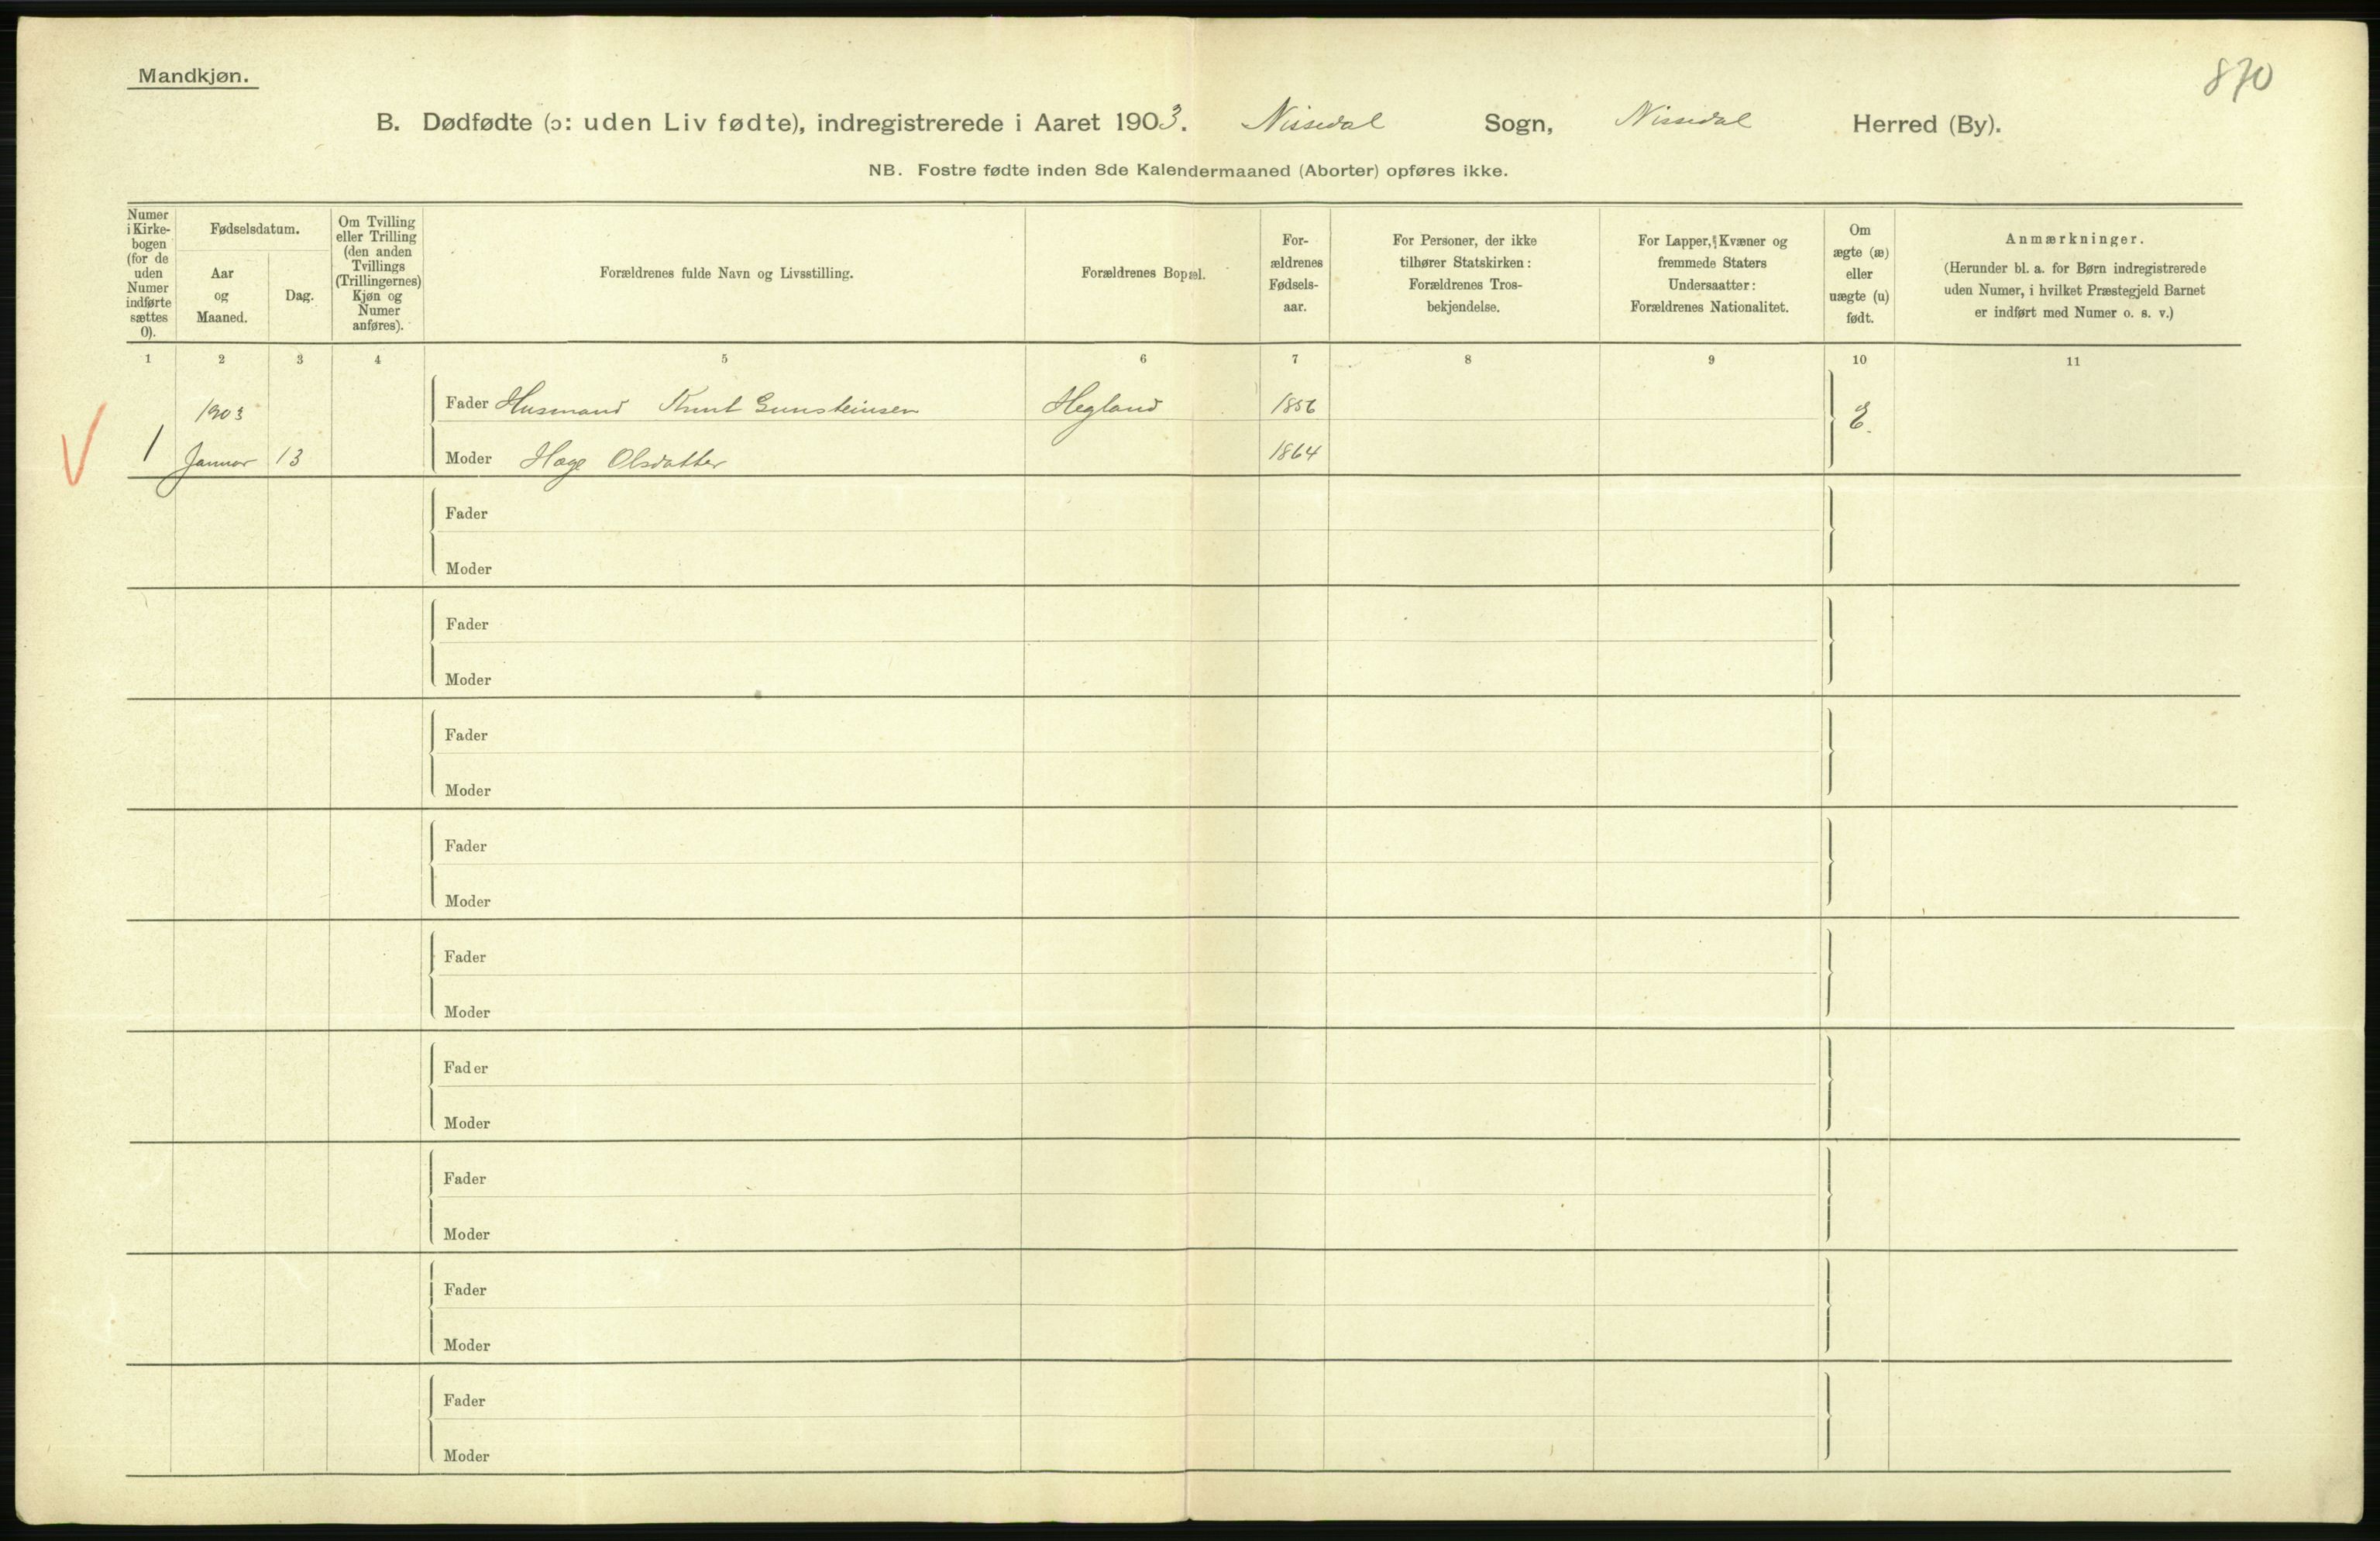 Mandkjøn.
870
B. Dødfødte (ɔ: uden Liv fødte), indregistrerede i Aaret 1903. Nissedal Sogn, Nissedal Herred (By).
NB. Fostre fødte inden 8de Kalendermaaned (Aborter) opføres ikke.
Numer
i Kirke-
bogen
(for de
uden
Numer
indførte
sættes
0).
Fødselsdatum.
Aar
og
Maaned.
Dag.
Om Tvilling
eller Trilling
(den anden
Tvillings
(Trillingernes)
Kjøn og
Numer
anføres).
Forældrenes fulde Navn og Livsstilling.
Forældrenes Bopæl.
For-
ældrenes
Fødsels-
aar.
For Personer, der ikke
tilhører Statskirken:
Forældrenes Tros-
bekjendelse.
For Lapper, Kvæner og
fremmede Staters
Undersaatter:
Forældrenes Nationalitet.
Om
ægte (æ)
eller
uægte (u)
født.
Anmærkninger.
(Herunder bl. a. for Børn indregistrerede
uden Numer, i hvilket Præstegjeld Barnet
er indført med Numer o. s. v.)
1 2 3 4 5 6 7 8 9 10 11
1903 Fader Husmand Knut Gunsteinsen Hegland 1856 E.
1 Januar 13 Moder Hæge Olsdatter 1864
Fader
Moder
Fader
Moder
Fader
Moder
Fader
Moder
Fader
Moder
Fader
Moder
Fader
Moder
Fader
Moder
Fader
Moder